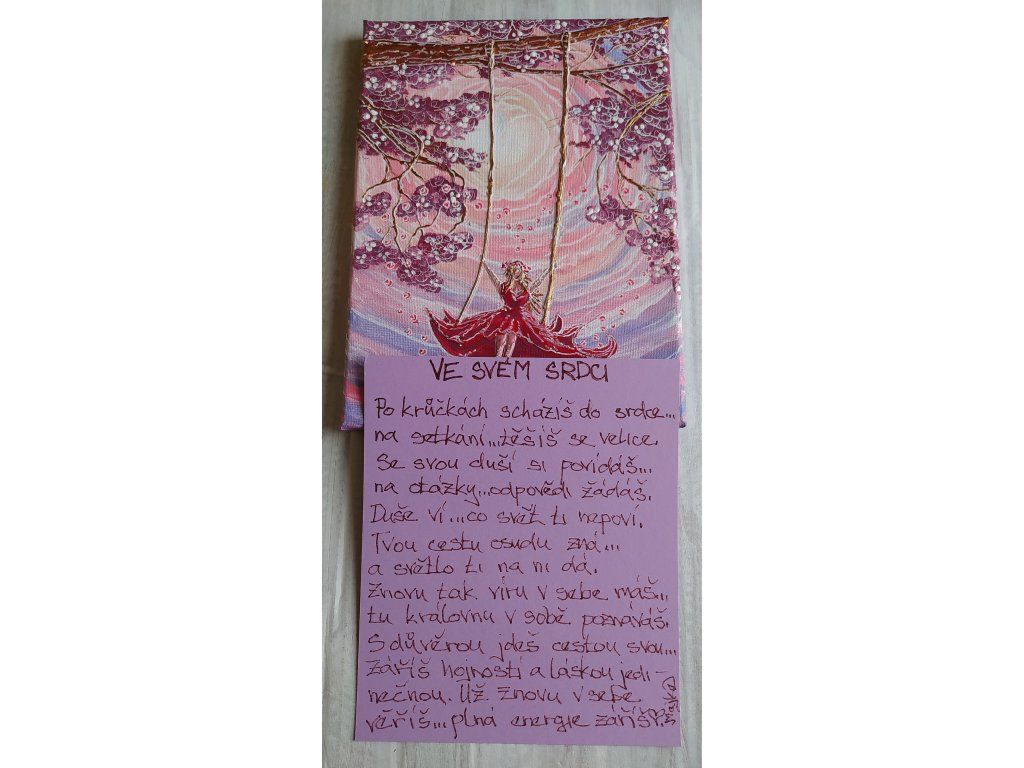 VE SVÉM SRDCI
Po krůčkách scházíš do srdce...
na setkání...těšíš se velice.
Se svou duší si povídáš...
na otázky...odpovědi žádáš.
Duše ví...co svět ti nepoví.
Tvou cestu osudu zná...
a světlo ti na ni dá.
Znovu tak víru v sebe máš...
tu královnu v sobě poznáváš.
S důvěrou jdeš cestou svou...
Záříš hojností a láskou jedi-
nečnou. Už znovu v sebe
věříš...plná energie záříš.